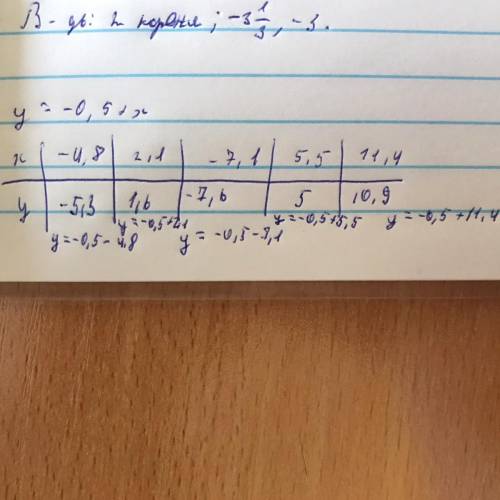 В-дь: 2 корня; -3 1/3, -3.
y = -0,5+x
x | -4,8 | 2,1 | -7,1 | 5,5 | 11,4
y | -5,3 | 1,6 | -7,6 | 5 | 10,9
y=-0,5-4,8 y=-0,5+2,1 y=-0,5-7,1 y=-0,5+5,5 y=-0,5+11,4